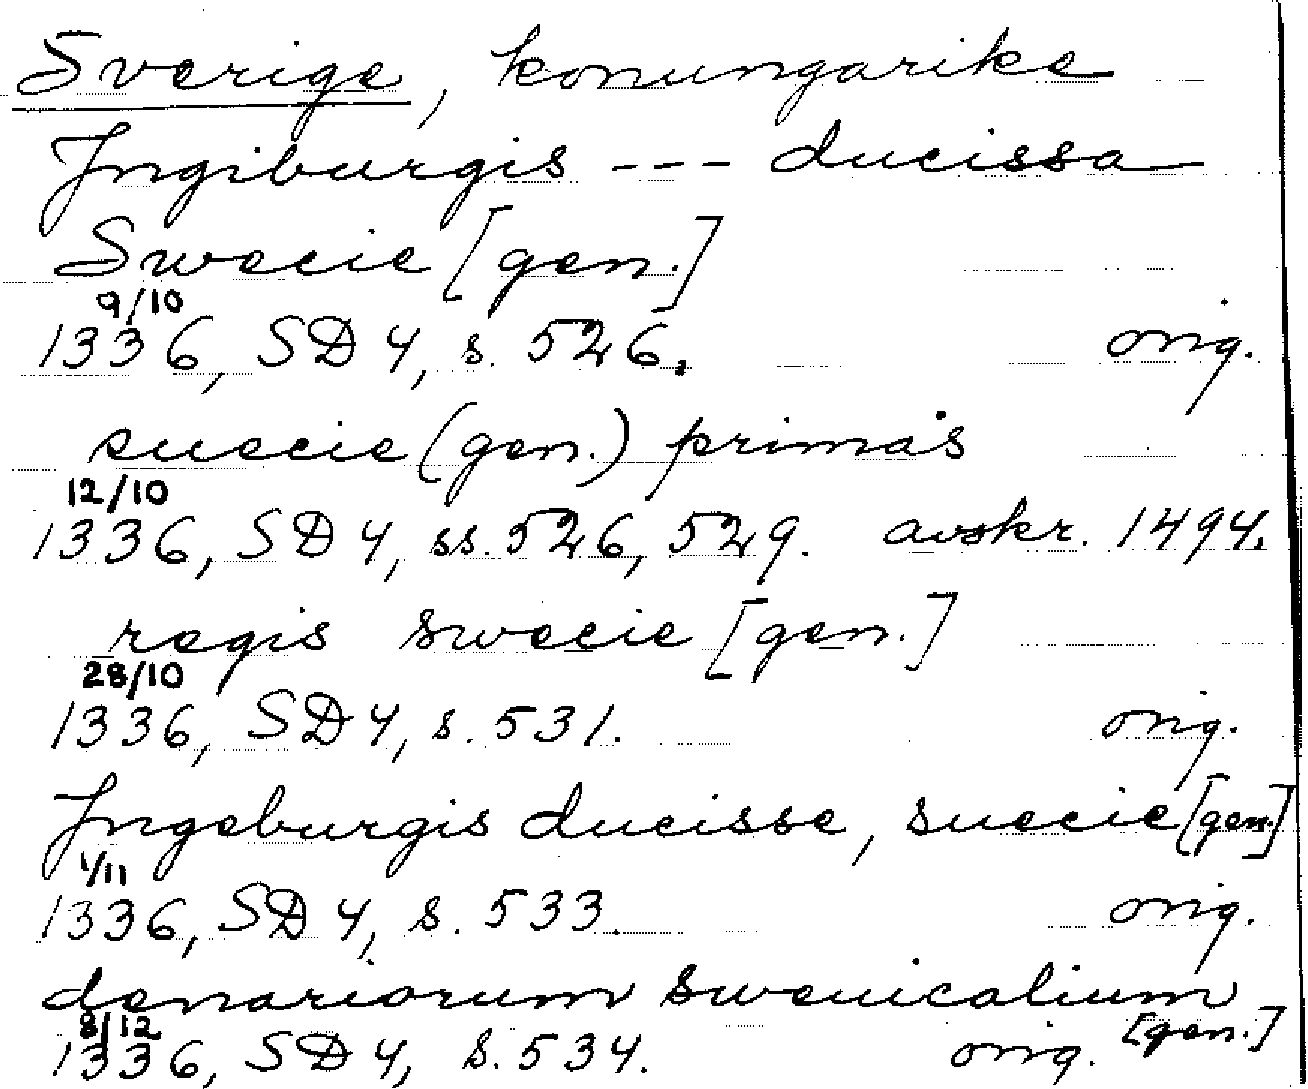 Sverige, konungarike
Jngiburgis --- ducissa
Swecie [gen.]
9/10
1336, SD 4, s. 526. orig.
suecie (gen.) primas
12/10
1336, SD 4, ss. 526, 529. avskr. 1494.
regis swecie [gen.]
28/10
1336, SD 4, s. 531. orig.
Jngeburgis ducisse, suecie [gen.]
1/11
1336, SD 4, s. 533. orig.
denariorum swenicalium
[gen.]
8/12
1336, SD 4, s. 534. orig.